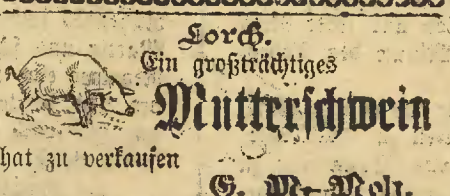 Lorch.
Ein großträchtiges
Mutterschwein
hat zu verkaufen
G. M.